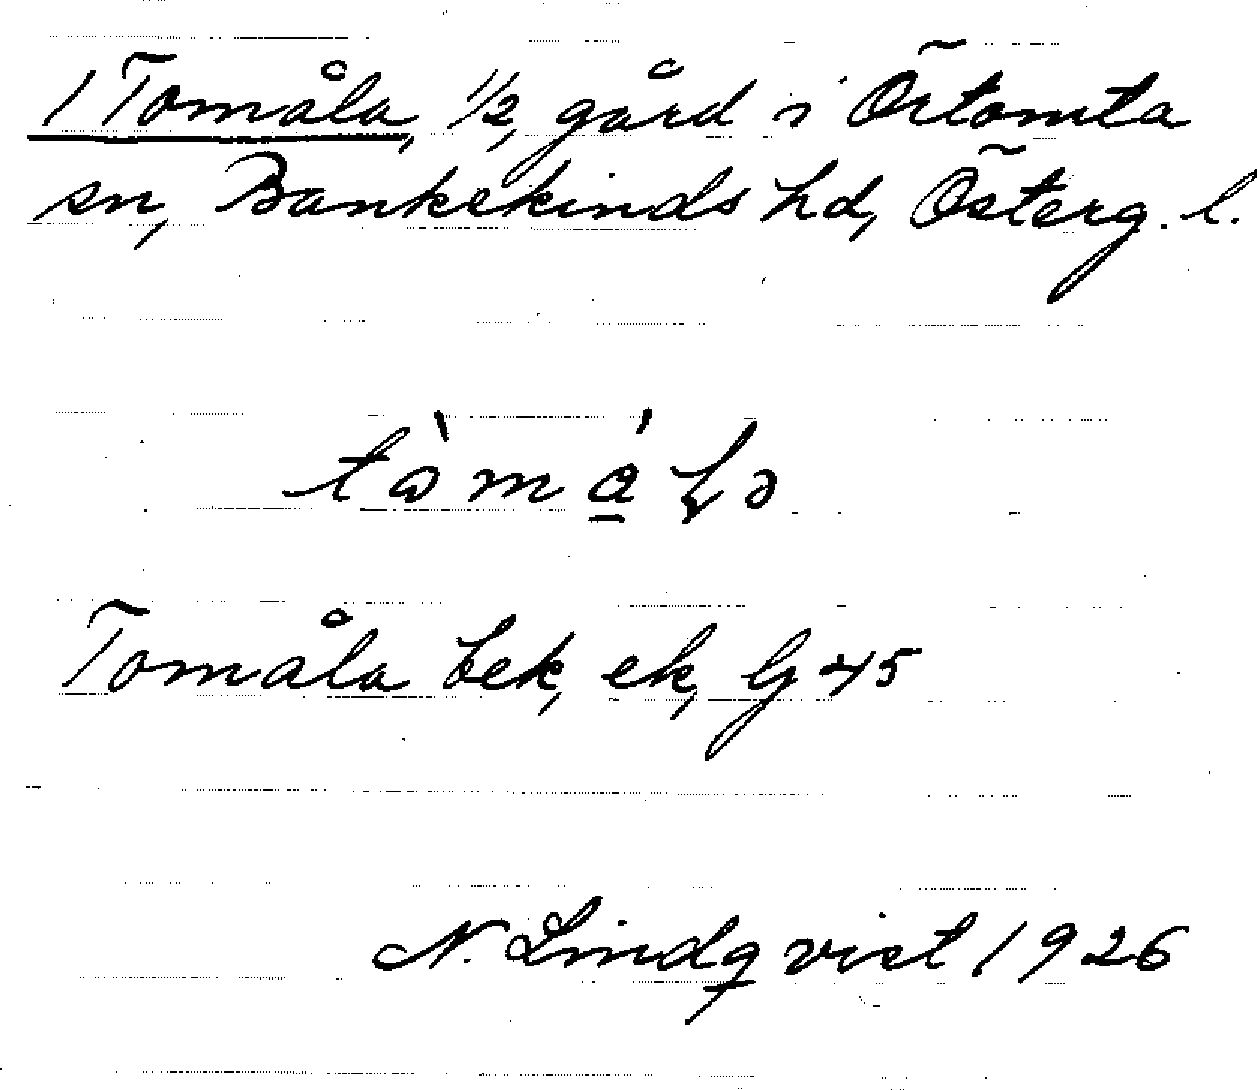 1 Tomåla, 1/2, gård i Örtomta
sn, Bankekinds hd, Österg. l.
Tomåla bek, ek, G 45
N. Lindqvist 1926